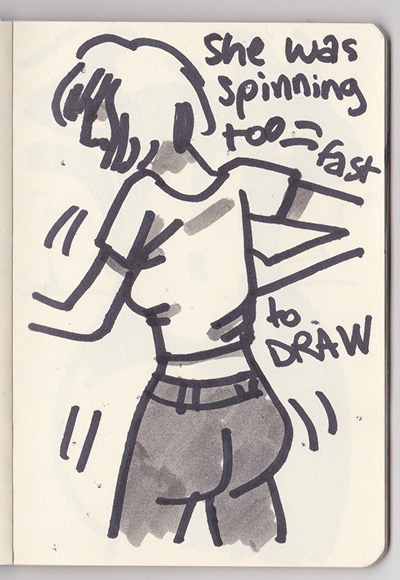 she was
spinning
too =
fast
to
DRAW